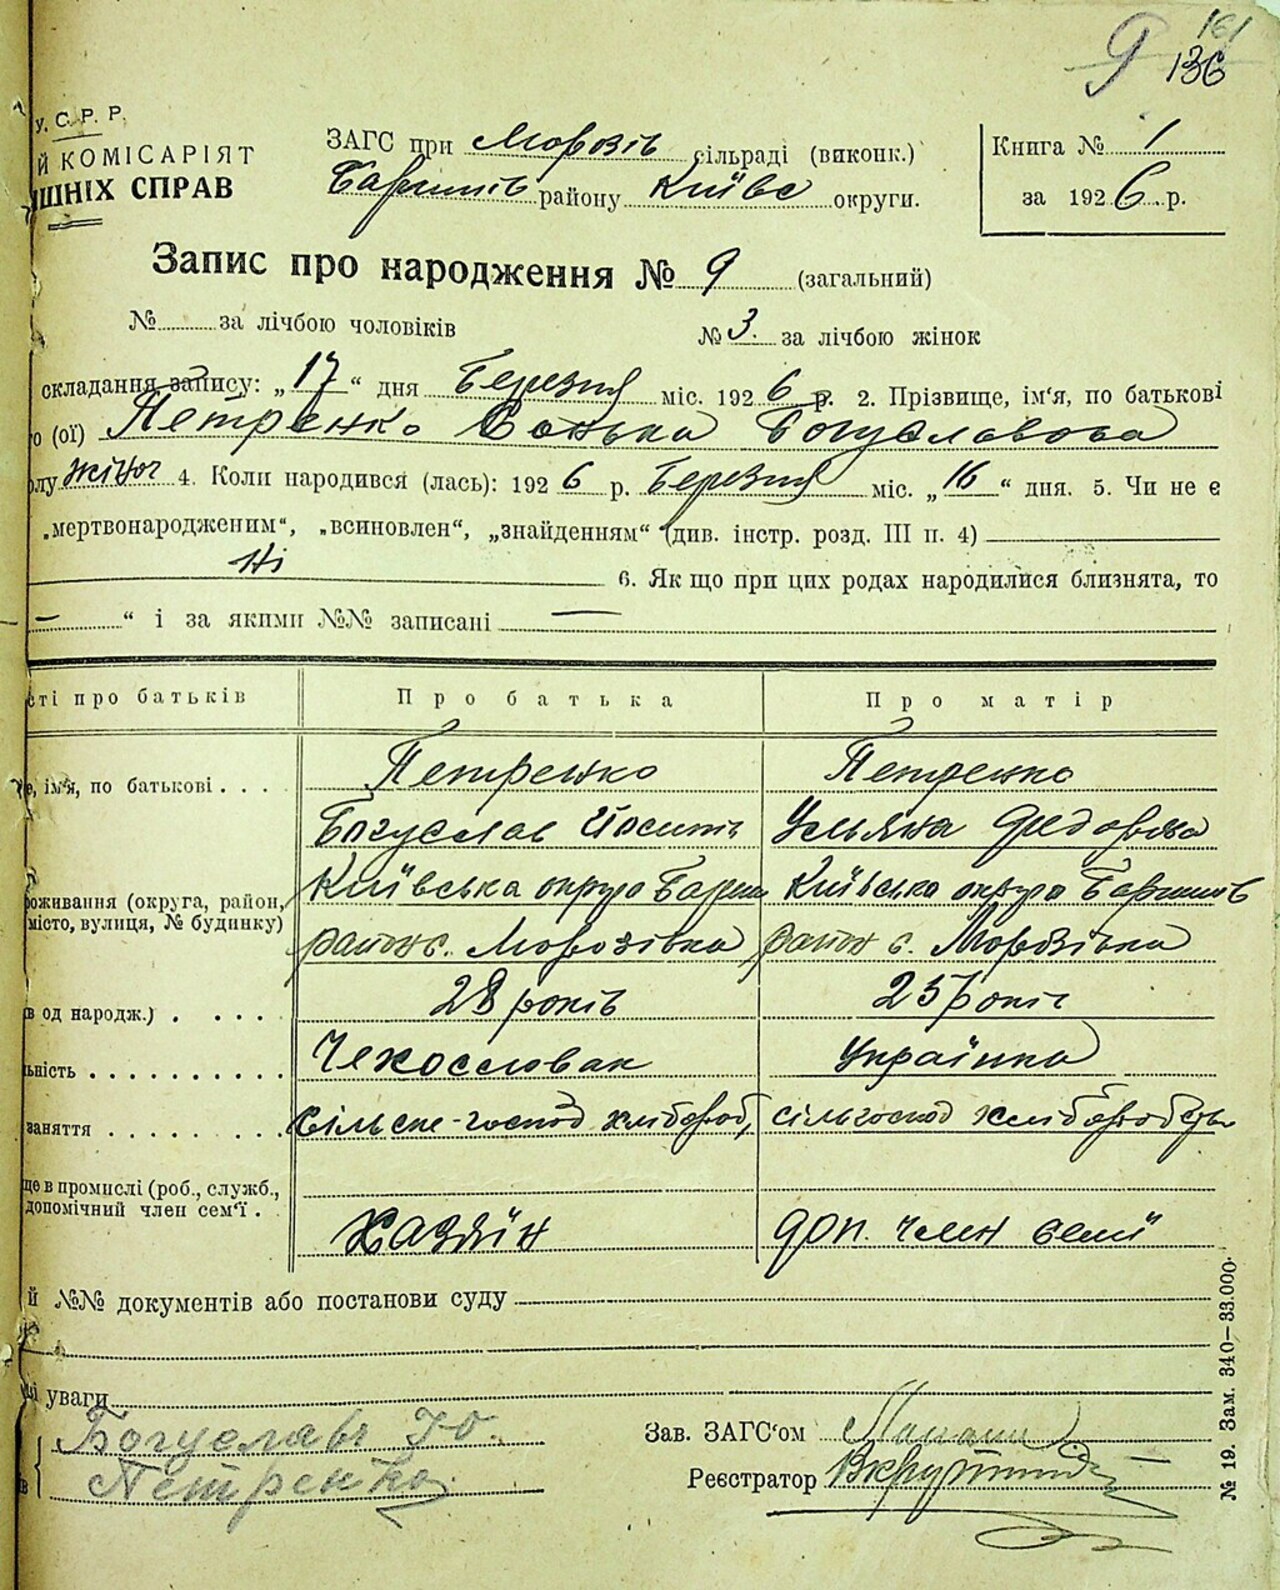 161
9 136
У. С. Р. Р.
Й КОМІСАРІЯТ
ІШНІХ СПРАВ
ЗАГС при Морозів сільраді (виконк.)
Баришів району Київс округи.
Книга № 1
за 1926 р.
Запис про народження № 9 (загальний)
№ за лічбою чоловіків
№ 3. за лічбою жінок
складання запису: „17“ дня Березня міс. 1926 р. 2. Прізвище, ім'я, по батькові
о (ої) Петренко Сонька Богуславова
олу жіноч 4. Коли народився (лась): 1926 р. Березня міс. „16“ дня. 5. Чи не є
„мертвонародженим“, „всиновлен“, „знайденням“ (див. інстр. розд. III п. 4)
Ні 6. Як що при цих родах народилися близнята, то
— “ і за якими №№ записані —
сті про батьків Про батька Про матір
е, ім'я, по батькові . . . . Петренко Петренко
Богуслав Йосипів Ульяна Федорова
роживання (округа, район, Київська округа Бариш Київська округа Баришів
місто, вулиця, № будинку) район с. Морозівка район с. Морозівка
в од народж.) . . . . 28 років 25 років
ьність . . . . . . . . . . Чехословак Українка
заняття . . . . . . . . Сільске-господ хлібороб, сільгоспод хлібороб
ще в промислі (роб., служб.,
допомічний член сем'ї . Хазяїн доп. член семії
й №№ документів або постанови суду
і уваги
Богуславъ Ю.
Петренко.
Зав. ЗАГС'ом
Реєстратор
№ 19. Зам. 340—33.000.